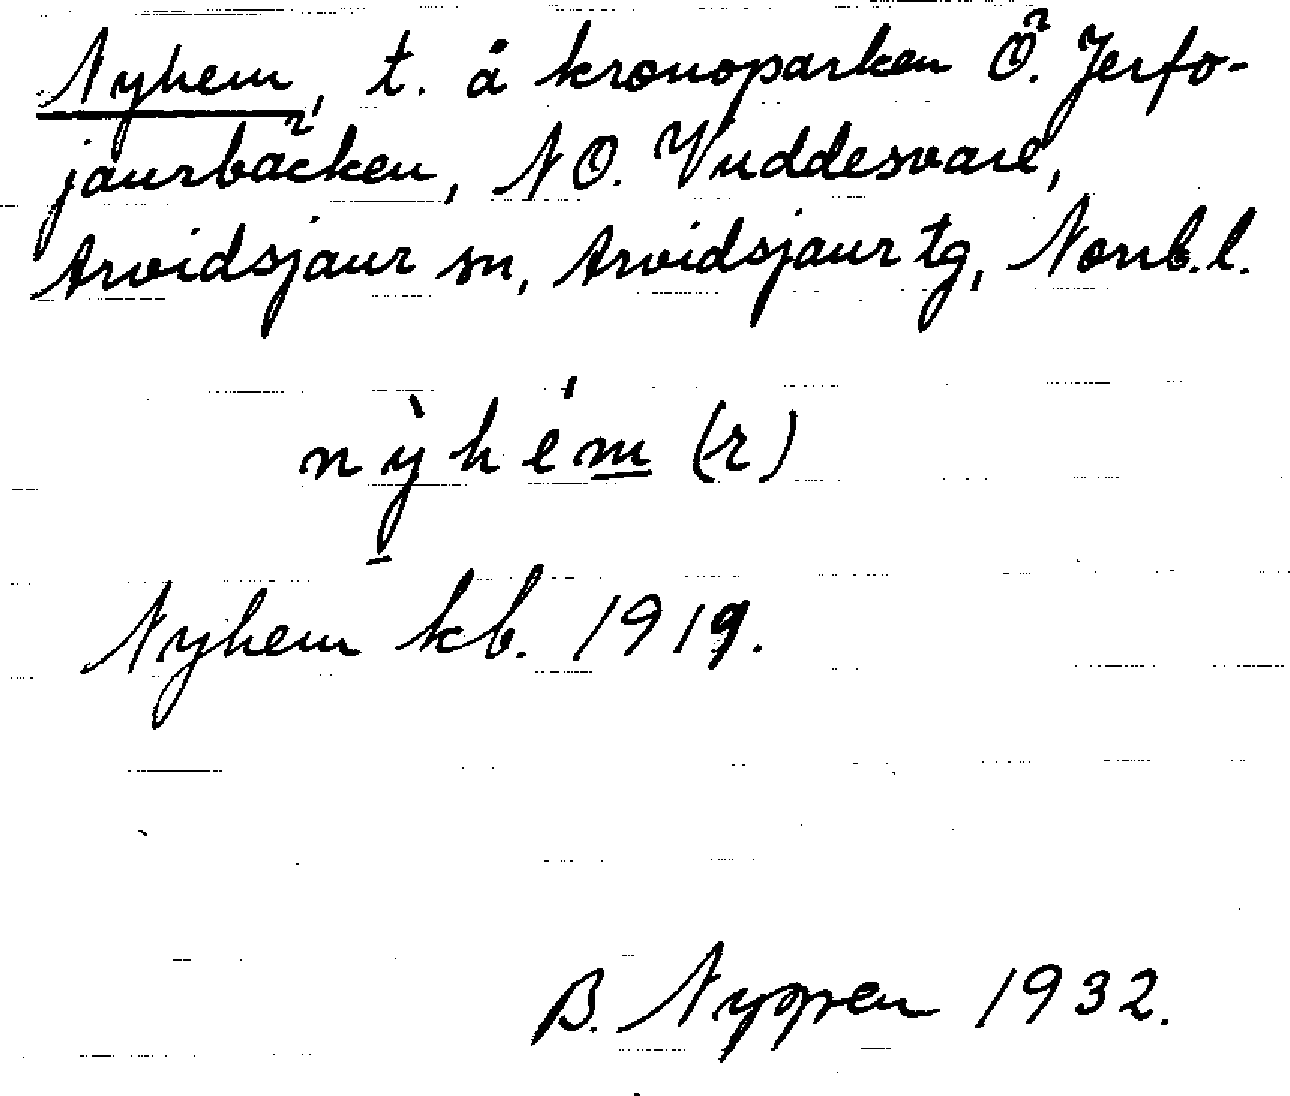 Nyhem, t. å kronoparken Ö. Jerfo-
jaurbäcken, NO. Vuddesvare,
Arvidsjaur sn, Arvidsjaur tg, Norrb. l.
nỳhém (-r)
Nyhem kb. 1919.
B. Nyppen 1932.